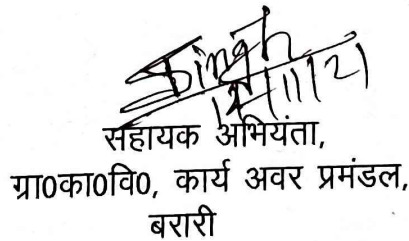 Singh
सहायक अभियंता,
ग्रा0का0वि0, कार्य अवर प्रमंडल,
बरारी